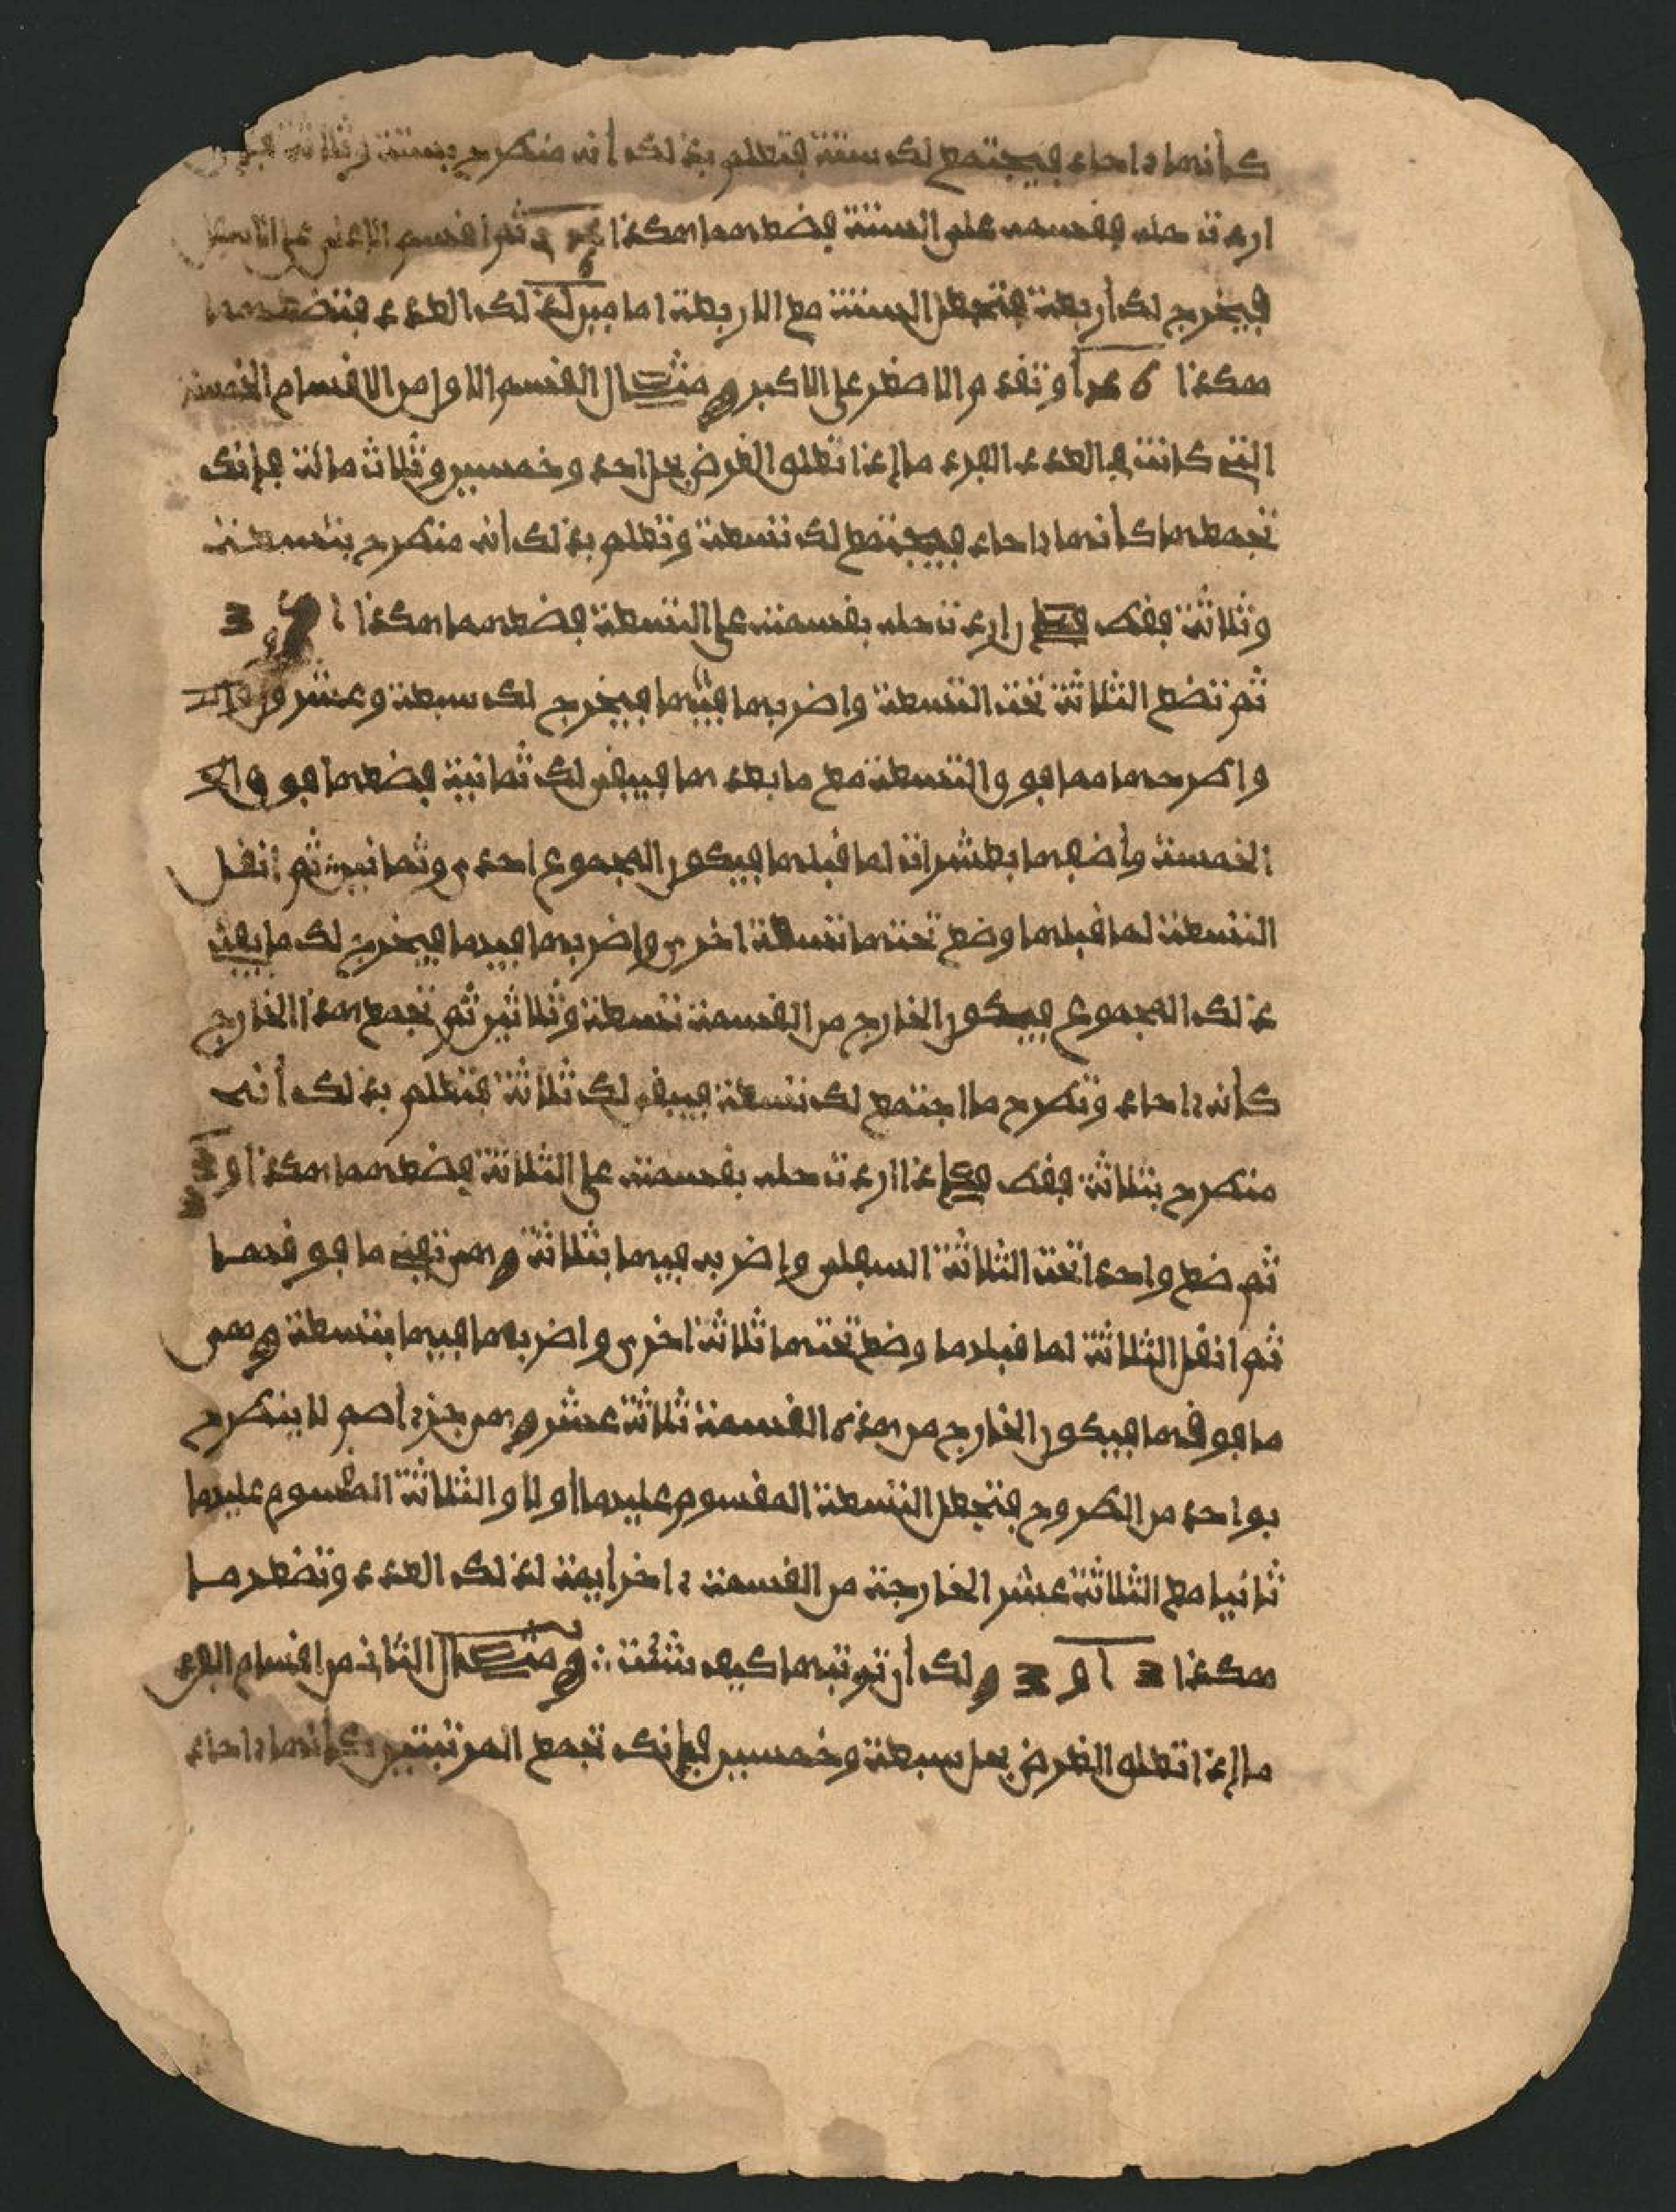 كأنها ءاحاد فيجتمع لك ستة فتعلم بذلك أنه منطرح بستة وثلاثة فإن
اردت حله فقسمه على الستة فضعهما هكذا ثم اقسم الاعلى على الاسفل
فيخرج لك أربعة فتجعل الستة مع الاربعة امامين لذلك العدد فتضعهما
هكذا 6 4 أو تقدم الاصغر على الاكبر ومثال القسم الاول من الاقسام الخمسة
التي كانت في العدد الفرد ما إذا تعلق الغرض بحل احد وخمسين وثلاث مائة فإنك
تجمعها كأنها ءاحاد فيجتمع لك تسعة وتعلم بذلك أنه منطرح بتسعة
وثلاثة فقط فإن اردت حله بقسمته على التسعة فضعهما هكذا
ثم تضع الثلاثة تحت التسعة واضربها فيها فيخرج لك سبعة وعشرون
واطرحها مما فوق التسعة مع ما بعدها فيبقى لك ثمانية فضعها فوق
الخمسة وأضفها بعشراته لما قبلها فيكون المجموع احدى وثمانين ثم انقل
التسعة لما قبلها وضع تحتها تسعة اخرى واضربها فيها فيخرج لك ما يفني
ذلك المجموع فيكون الخارج من القسمة تسعة وثلاثين ثم تجمع هذا الخارج
كأنه ءاحاد وتطرح ما اجتمع لك تسعة فيبقى لك ثلاثة فتعلم بذلك أنه
منطرح بثلاثة فقط فإذا اردت حله بقسمته على الثلاثة فضعهما هكذا
ثم ضع واحدا تحت الثلاثة السفلى واضربه فيها بثلاثة وهي تفني ما فوقها
ثم انقل الثلاثة لما قبلها وضع تحتها ثلاثة اخرى واضربها فيها بتسعة وهي
ما فوقها فيكون الخارج من هذه القسمة ثلاثة عشر وهي جزء أصم لا ينطرح
بواحد من الطروح فتجعل التسعة المقسوم عليها أولا والثلاثة المقسوم عليها
ثانيا مع الثلاثة عشر الخارجة من القسمة ءاخرا يمة لذلك العدد وتضعها
هكذا 3 9 3 ولك أن ترتبها كيف شئت ∴ ومثال الثاني من اقسام الفرد
ما إذا تعلق الغرض بحل سبعة وخمسين فإنك تجمع المرتبتين كأنهما ءاحاد